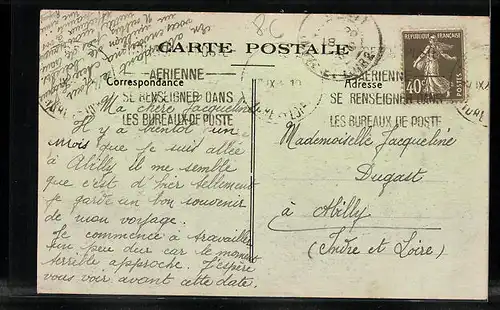 CARTE POSTALE
Correspondance
Adresse
AÉRIENNE
SE RENSEIGNER DANS
LES BUREAUX DE POSTE
AÉRIENNE
SE RENSEIGNER DANS
LES BUREAUX DE POSTE
REPUBLIQUE FRANÇAISE
40c
POSTES
8C
Ma chère Jacqueline
Il y a bientôt un
mois que je suis allée
à Abilly il me semble
que c'est d'hier tellement
je garde un bon souvenir
de mon voyage.
Je commence à travailler
un peu dur car le moment
terrible approche. J'espère
vous voir avant cette date.
Mademoiselle Jacqueline
Dugast
à Abilly
(Indre et Loire)